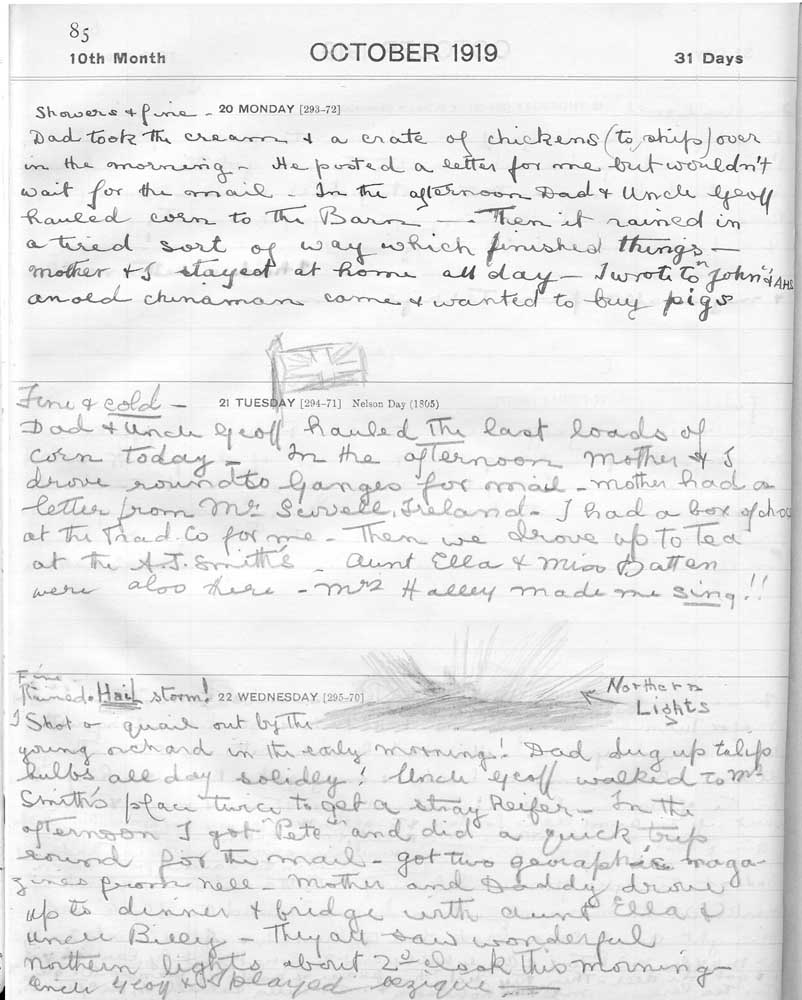 85
10th Month OCTOBER 1919 31 Days
Showers & fine - 20 MONDAY [293-72]
Dad took the cream & a crate of chickens (to ship) over
in the morning - He posted a letter for me but wouldn't
wait for the mail In the afternoon Dad & Uncle Geoff
hauled corn to the Barn — Then it rained in
a tired sort of way which finished things —
Mother & I stayed at home all day - I wrote to "John" & AHS
an old chinaman came & wanted to buy pigs
Fine & cold - 21 TUESDAY [294-71] Nelson Day (1805)
Dad & Uncle Geoff hauled The last loads of
corn today - In the afternoon Mother & I
drove round to Ganges for mail - mother had a
letter from Mr Scovell, Ireland - I had a box of
at the Trad. Co for me - Then we drove up to Tea
at the A.J. Smith's - Aunt Ella & Miss Batten
were also there - Mrs Halley made me sing!!
Fine
Rained & Hail storm! 22 WEDNESDAY [295-70] Northern
Lights
I Shot a quail out by the
young orchard in the early morning! Dad dug up tulip
bulbs all day solidly! Uncle Geoff walked to Mr
Smith's place twice to get a stray Heifer - In the
afternoon I got "Pete" and did a quick trip
round for the mail - got two geographic maga-
zines from Nell - Mother and Daddy drove
up to dinner & bridge with Aunt Ella &
Uncle Billy - They all saw wonderful
northern lights about 2 o'clock this morning -
Uncle Geoff & I played bezique —